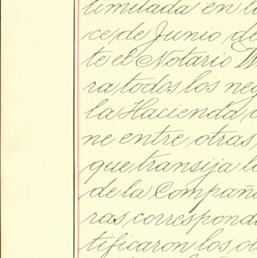 limitada en l
ce de Junio de
te el Notario
ra todos los neg
la Hacienda
ne entre otras,
que transija l
de la Compañ
ras, correspond
tificaron los